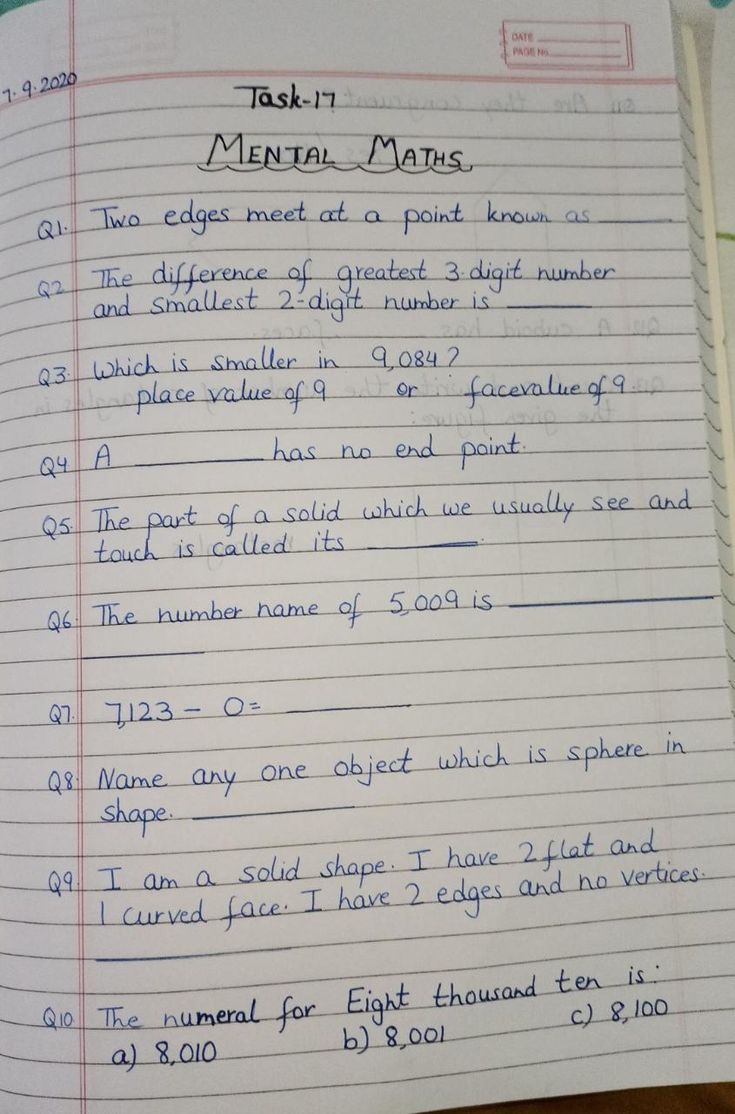 DATE
PAGE No.
7.9.2020
Task-17
MENTAL MATHS
Q1. Two edges meet at a point known as ______
Q2 The difference of greatest 3-digit number
and smallest 2-digit number is ______
Q3. Which is smaller in 9,084?
place value of 9 or facevalue of 9
Q4 A ______ has no end point.
Q5. The part of a solid which we usually see and
touch is called its ______.
Q6. The number name of 5,009 is ______
______
Q7. 7,123 - 0= ______
Q8. Name any one object which is sphere in
shape. ______
Q9. I am a solid shape. I have 2 flat and
1 curved face. I have 2 edges and no vertices.
______
Q10 The numeral for Eight thousand ten is:
a) 8,010 b) 8,001 c) 8,100